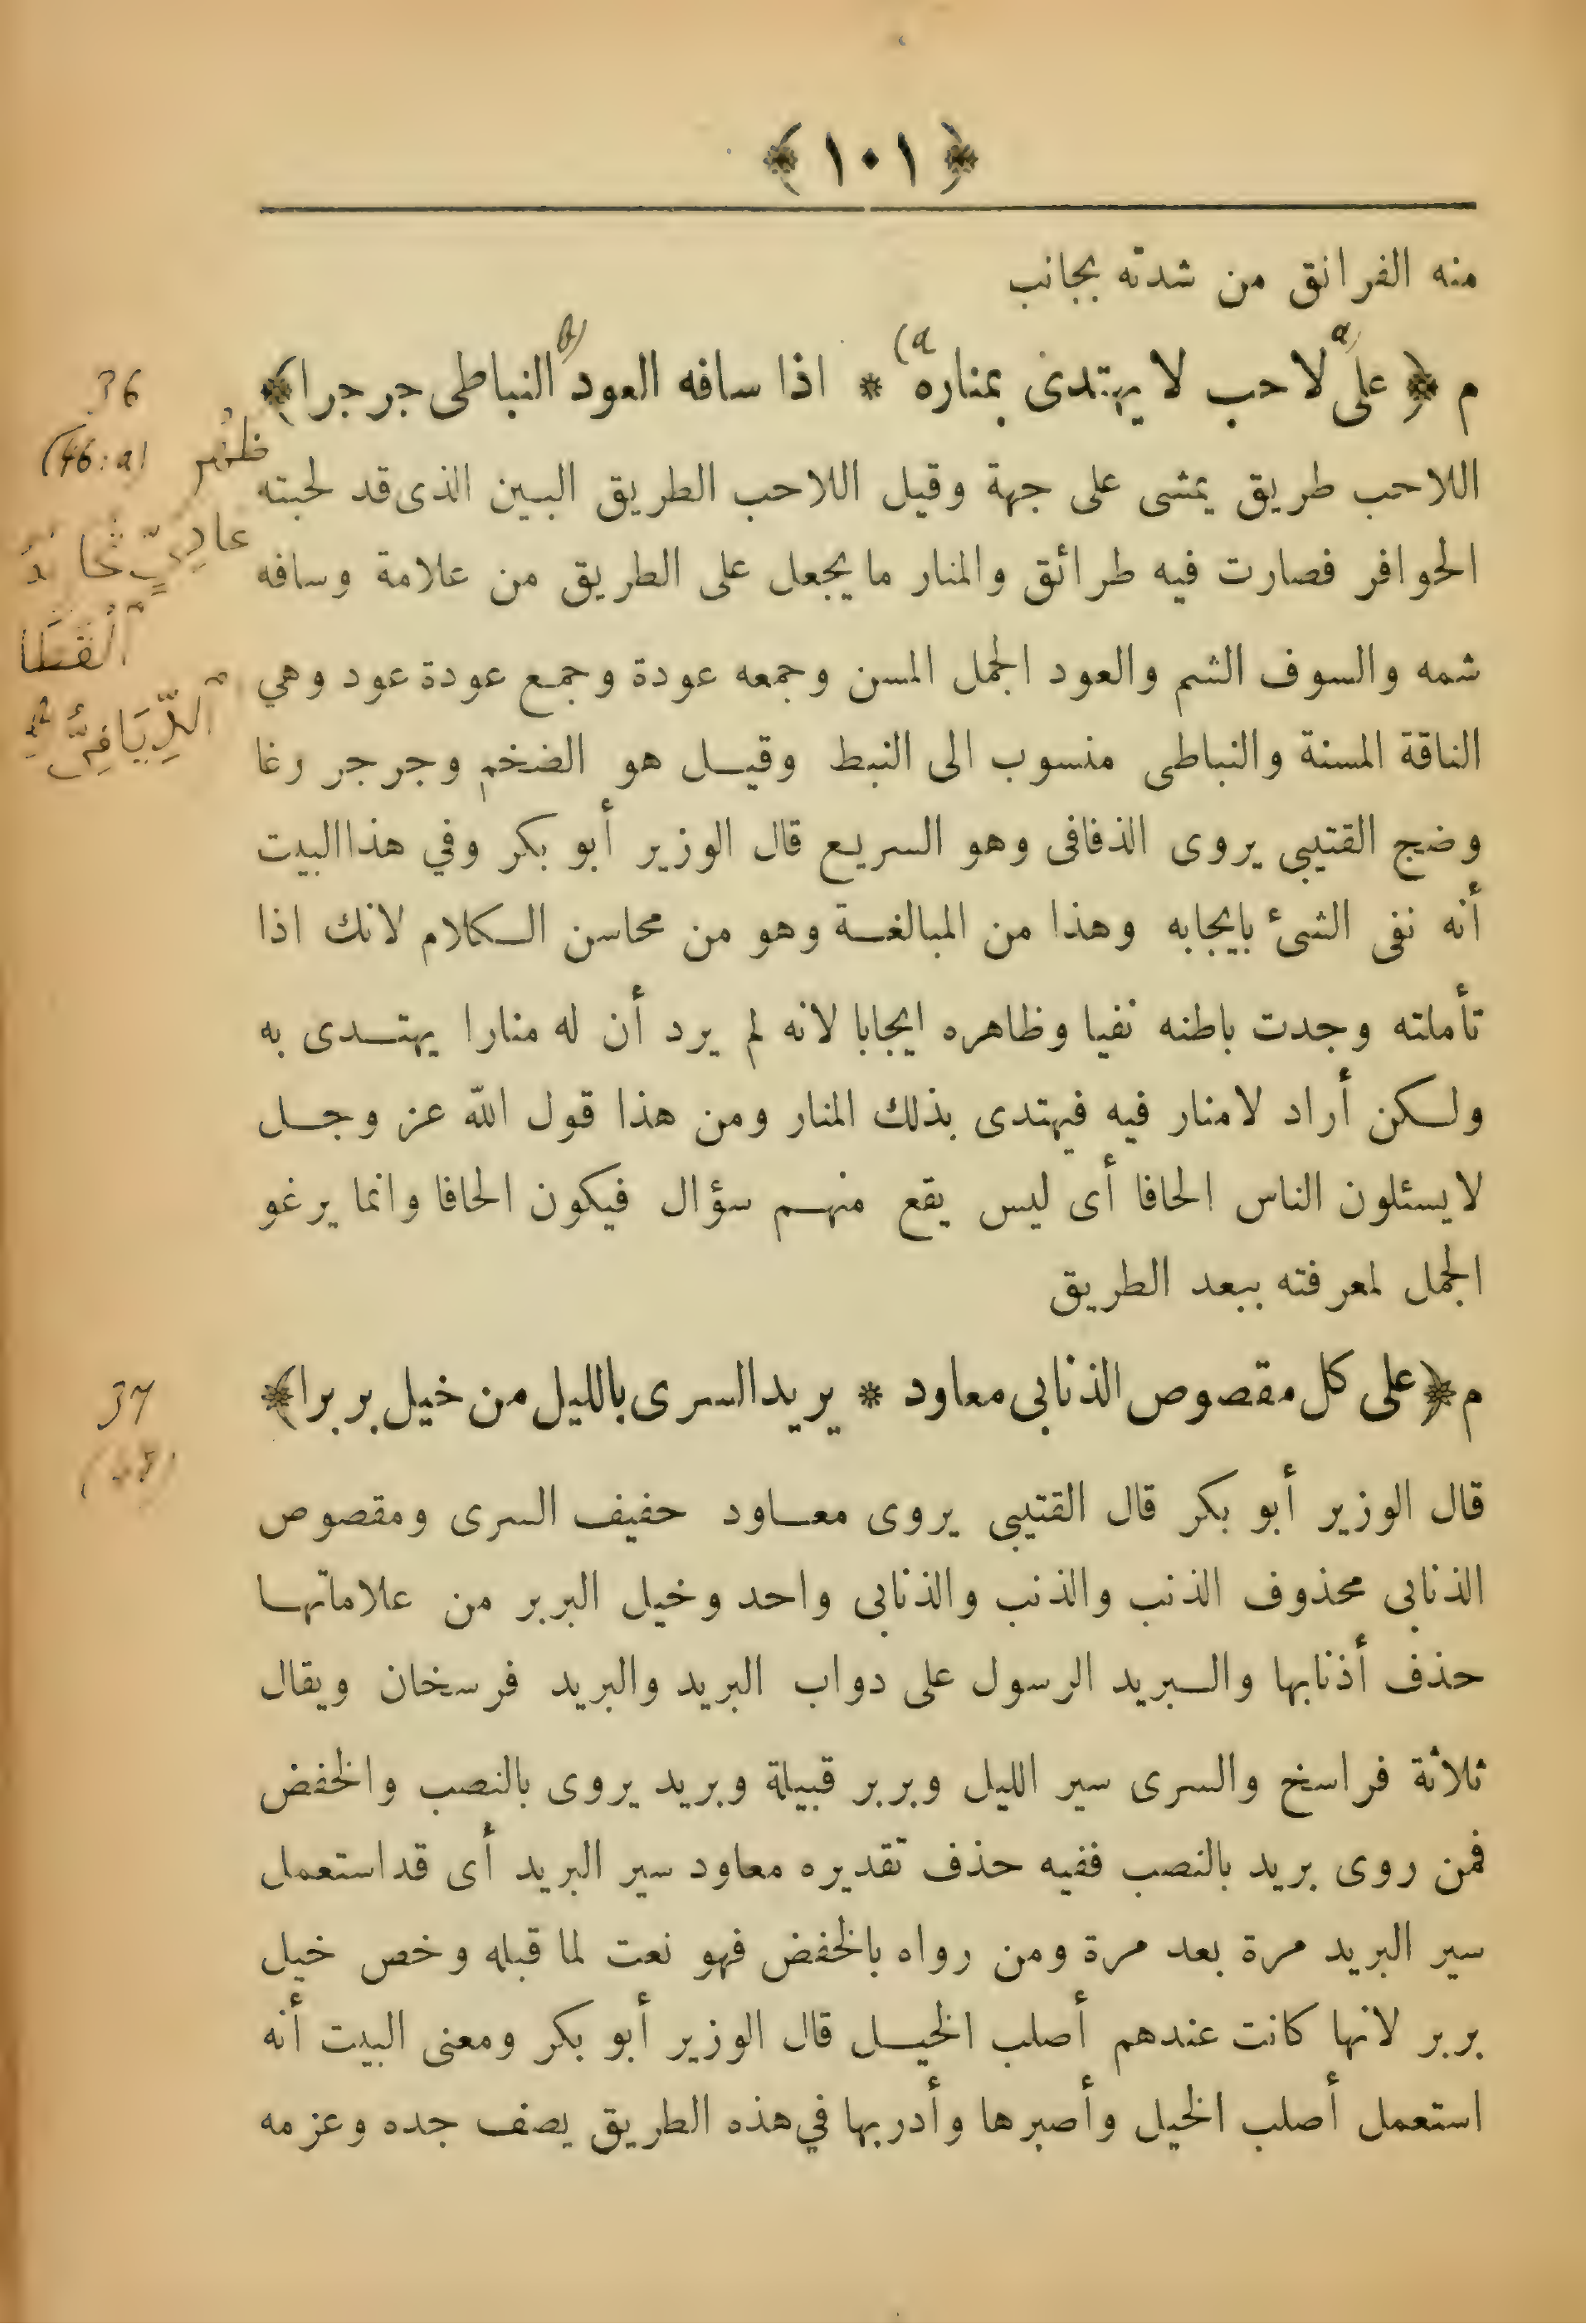 ﴿ ١٠١ ﴾
منه الفرانق من شدته بجانب
م ﴿ على لاحب لا يهتدى بمناره * اذا سافه العود النباطى جرجرا ﴾
a) a) b)
36
(46: a)
ظهر
عادي
القطا
الديافي
اللاحب طريق يمشى على جهة وقيل اللاحب الطريق البين الذى قد لحبته
الحوافر فصارت فيه طرائق والمنار ما يجعل على الطريق من علامة وسافه
شمه والسوف الشم والعود الجمل المسن وجمعه عودة وجمع عودة عود وهي
الناقة المسنة والنباطى منسوب الى النبط وقيل هو الضخم وجرجر رغا
وضج القتيبى يروى الذفافى وهو السريع قال الوزير أبو بكر وفي هذا البيت
أنه نفى الشئ بايجابه وهذا من المبالغة وهو من محاسن الكلام لانك اذا
تأملته وجدت باطنه نفيا وظاهره ايجابا لانه لم يرد أن له منارا يهتدى به
ولكن أراد لا منار فيه فيهتدى بذلك المنار ومن هذا قول الله عز وجل
لا يسئلون الناس الحافا أى ليس يقع منهم سؤال فيكون الحافا وانما يرغو
الجمل لمعرفته ببعد الطريق
م ﴿ على كل مقصوص الذنابى معاود * بريد السرى بالليل من خيل بربرا ﴾
37
قال الوزير أبو بكر قال القتيبى يروى معاود حفيف السرى ومقصوص
الذنابى محذوف الذنب والذنب والذنابى واحد وخيل البربر من علاماتها
حذف أذنابها والبريد الرسول على دواب البريد والبريد فرسخان ويقال
ثلاثة فراسخ والسرى سير الليل وبربر قبيلة وبريد يروى بالنصب والخفض
فمن روى بريد بالنصب ففيه حذف تقديره معاود سير البريد أى قد استعمل
سير البريد مرة بعد مرة ومن رواه بالخفض فهو نعت لما قبله وخص خيل
بربر لانها كانت عندهم أصلب الخيل قال الوزير أبو بكر ومعنى البيت أنه
استعمل أصلب الخيل وأصبرها وأدربها في هذه الطريق يصف جده وعزمه